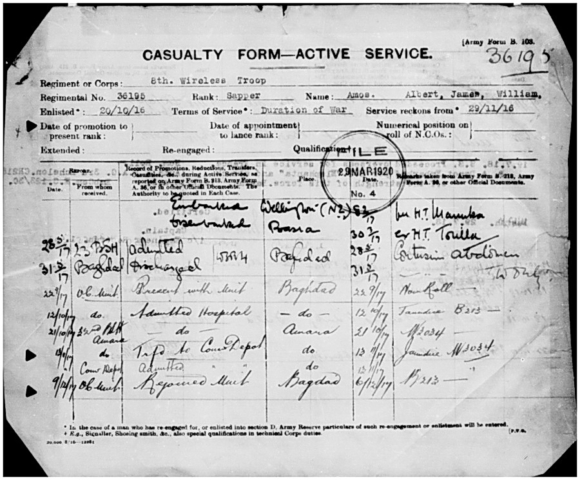 [Army Form B. 103.
36195
CASUALTY FORM—ACTIVE SERVICE.
Regiment or Corps: 8th. Wireless Troop
Regimental No. 36195 Rank: Sapper Name: Amos. Albert, James, William,
Enlisted* 20/10/16 Terms of Service* Duration of War Service reckons from* 29/11/16
Date of promotion to present rank: Date of appointment to lance rank: Numerical position on roll of N.C.Os.:
Extended: Re-engaged: Qualification
FILE
29 MAR 1920
No. 4
Report
Date From whom received.
Record of Promotions, Reductions, Transfers, Casualties, &c., during Active Service, as reported on Army Form B. 213, Army Form A. 36, or in other Official Documents. The Authority to be quoted in each Case.
Date
Remarks taken from Army Form B. 213, Army Form A. 36, or other Official Documents.
Embarked Wellington (NZ) per H.T. Manuka
Disembarked Basra ex H.T. Torilla
Admitted Baghdad Contusion abdomen
Baghdad Discharged
22 9/17 O.C. Unit Present with Unit Baghdad 22 9/17 Nom Roll —
12/10/17 do — Admitted Hospital — do — 12 10/17 Jaundice B213 —
21/10/17 Amara — do — Amara 21 10/17 W3034 —
Trfd to Conv Depot do Jaundice W3034
Conv Depot Admitted " " do
9/12/17 O.C. Unit Rejoined Unit Baghdad 6/12/17 B213 —
* In the case of a man who has re-engaged for, or enlisted into section D, Army Reserve particulars of such re-engagement or enlistment will be entered.
* E.g., Signaller, Shoeing smith, &c., also special qualifications in technical Corps duties.
[P.T.O.